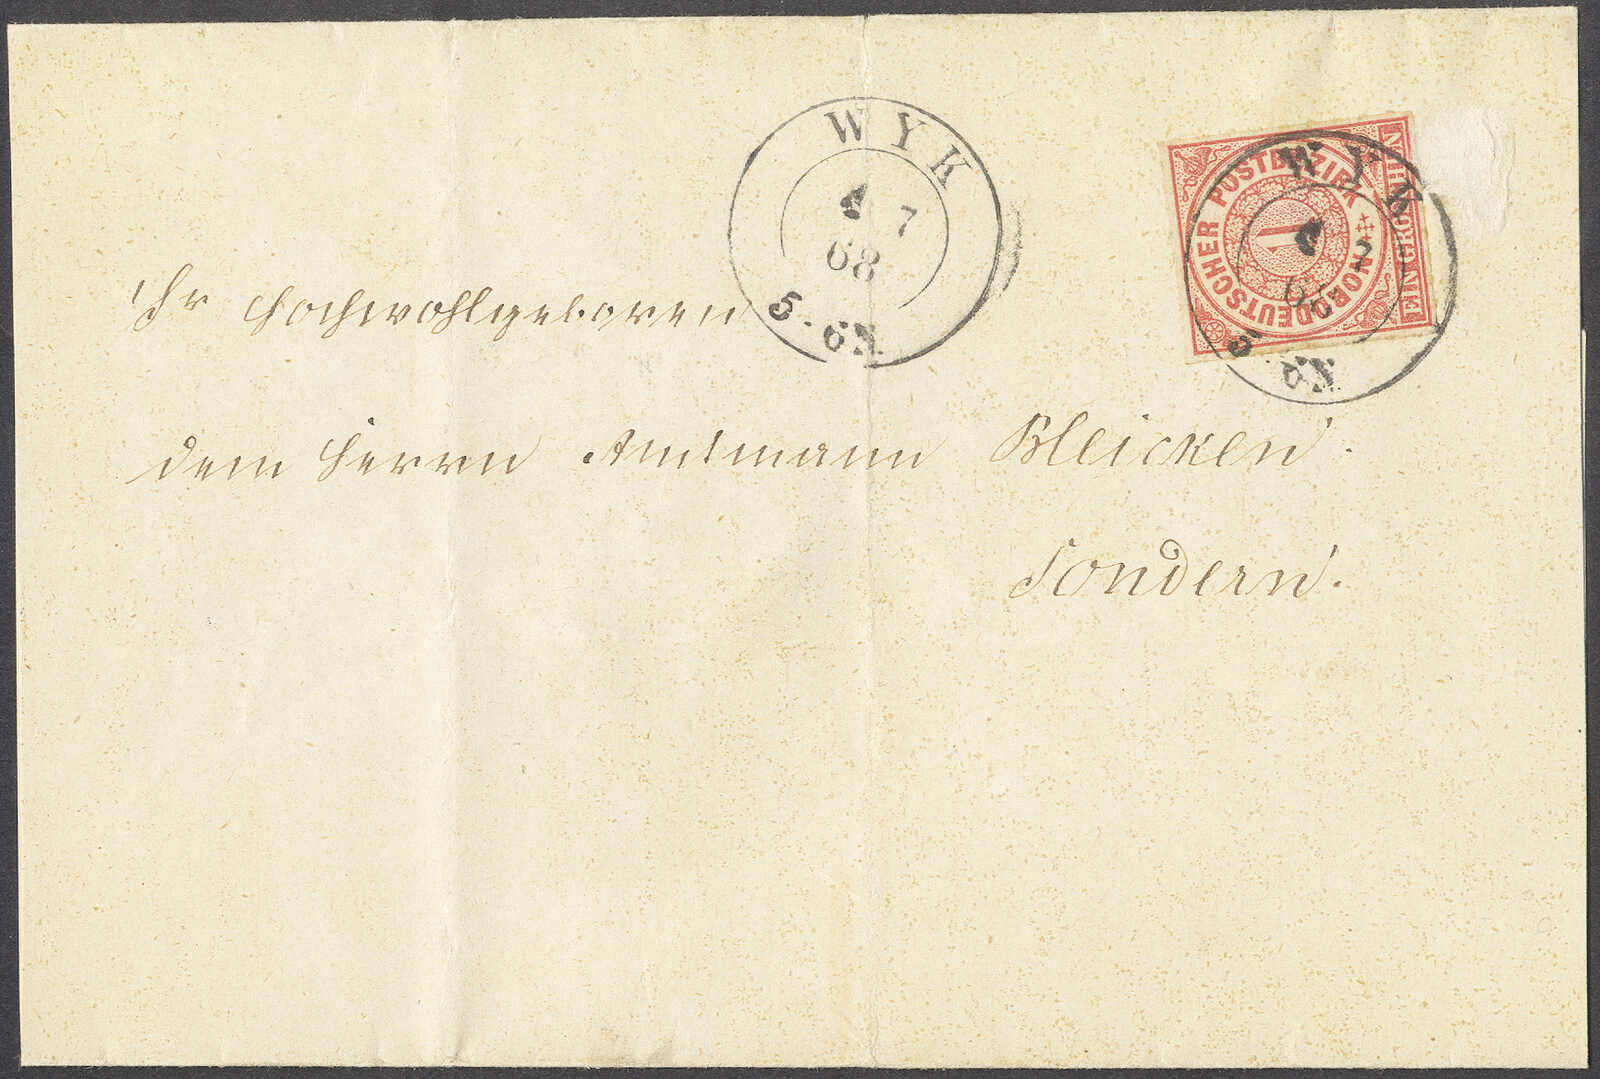 WYK
7
68
5-6N
NORDDEUTSCHER POSTBEZIRK
1
WYK
7
68
5-6N
Ihr Hochwohlgeboren
dem Herrn Amtmann Bleicken.
Tondern.